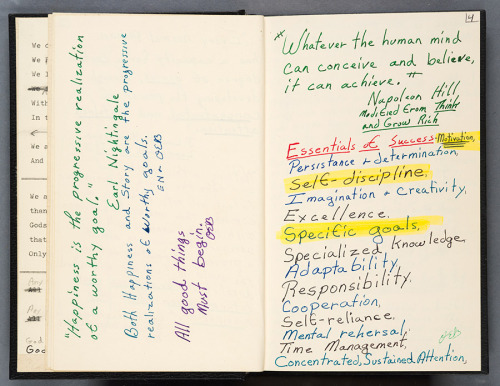 We
We
We
With
In t
We
And
We a
than
Gods
that
Only
God
God
"Happiness is the progressive realization
of a worthy goal."
Earl Nightingale
Both Happiness and Story are the progressive
realizations of worthy goals.
OEB
All good things
must begin.
OEB
4
"Whatever the human mind
can conceive and believe,
it can achieve."
Napoleon Hill,
Modified from Think
and Grow Rich
Essentials of Success: Motivation,
Persistance + determination,
Self-discipline,
Imagination + Creativity,
Excellence.
Specific goals,
Specialized Knowledge,
Adaptability,
Responsibility.
Cooperation,
Self-reliance.
Mental rehersal,
OEB
Time Management,
Concentrated, Sustained Attention,